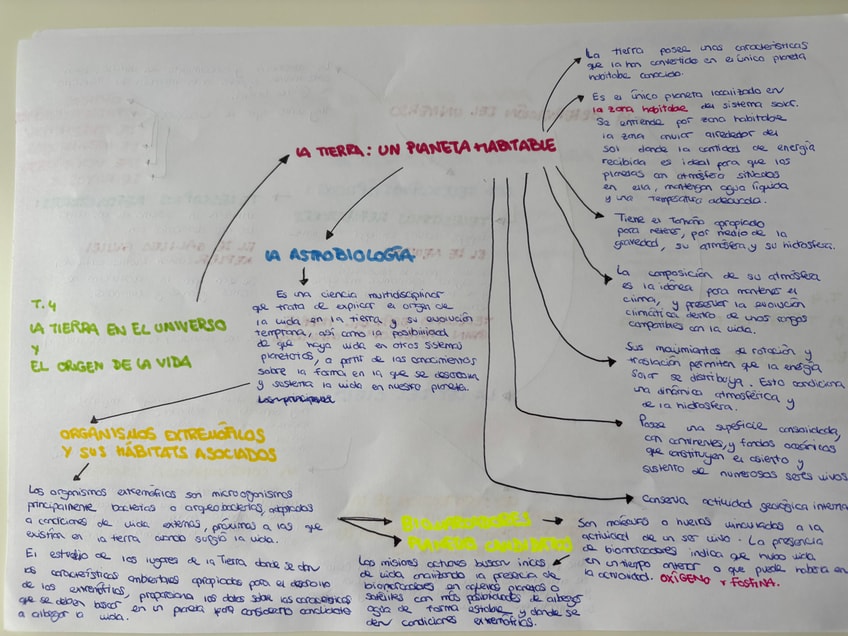 T.4
LA TIERRA EN EL UNIVERSO
Y
EL ORIGEN DE LA VIDA
LA TIERRA: UN PLANETA HABITABLE
La tierra posee unas características
que la han convertido en el único planeta
habitable conocido.
Es el único planeta localizado en
la zona habitable del sistema solar.
Se entiende por zona habitable
la zona anular alrededor del
sol donde la cantidad de energía
recibida es ideal para que los
planetas con atmósfera situados
en ella, mantengan agua líquida
y una temperatura adecuada.
Tiene el tamaño apropiado
para retener, por medio de la
gravedad, su atmósfera y su hidrosfera.
La composición de su atmósfera
es la idónea para mantener el
clima, y preservar la evolución
climática dentro de unos rangos
compatibles con la vida.
Sus movimientos de rotación y
traslación permiten que la energía
solar se distribuya. Esto condiciona
una dinámica atmosférica y
de la hidrosfera.
Posee una superficie consolidada,
con continentes, y fondos oceánicos
que constituyen el asiento y
sustento de numerosos seres vivos.
Conserva actividad geológica interna
LA ASTROBIOLOGÍA
Es una ciencia multidisciplinar
que trata de explicar el origen de
la vida en la tierra y su evolución
temprana, así como la posibilidad
de que haya vida en otros sistemas
planetarios, a partir de los conocimientos
sobre la forma en la que se desarrolla
y sustenta la vida en nuestro planeta.
ORGANISMOS EXTREMÓFILOS
Y SUS HÁBITATS ASOCIADOS
Los organismos extremófilos son microorganismos
principalmente bacterias o arqueobacterias, adaptados
a condiciones de vida extremas, próximas a las que
existían en la tierra cuando surgió la vida.
El estudio de los lugares de la Tierra donde se dan
las características ambientales apropiadas para el desarrollo
de los extremófilos, proporciona los datos sobre las características
que se deben buscar en un planeta para considerarlo candidato
a albergar la vida.
BIOMARCADORES
PLANETAS CANDIDATOS
Las misiones actuales buscan indicios
de vida analizando la presencia de
biomarcadores en aquellos planetas o
satélites con más posibilidades de albergar
agua de forma estable y donde se
den condiciones extremófilas.
Son moléculas o huellas vinculadas a la
actividad de un ser vivo. La presencia
de biomarcadores indica que hubo vida
en un tiempo anterior o que puede haberla en
la actividad. OXÍGENO Y FOSFINA.